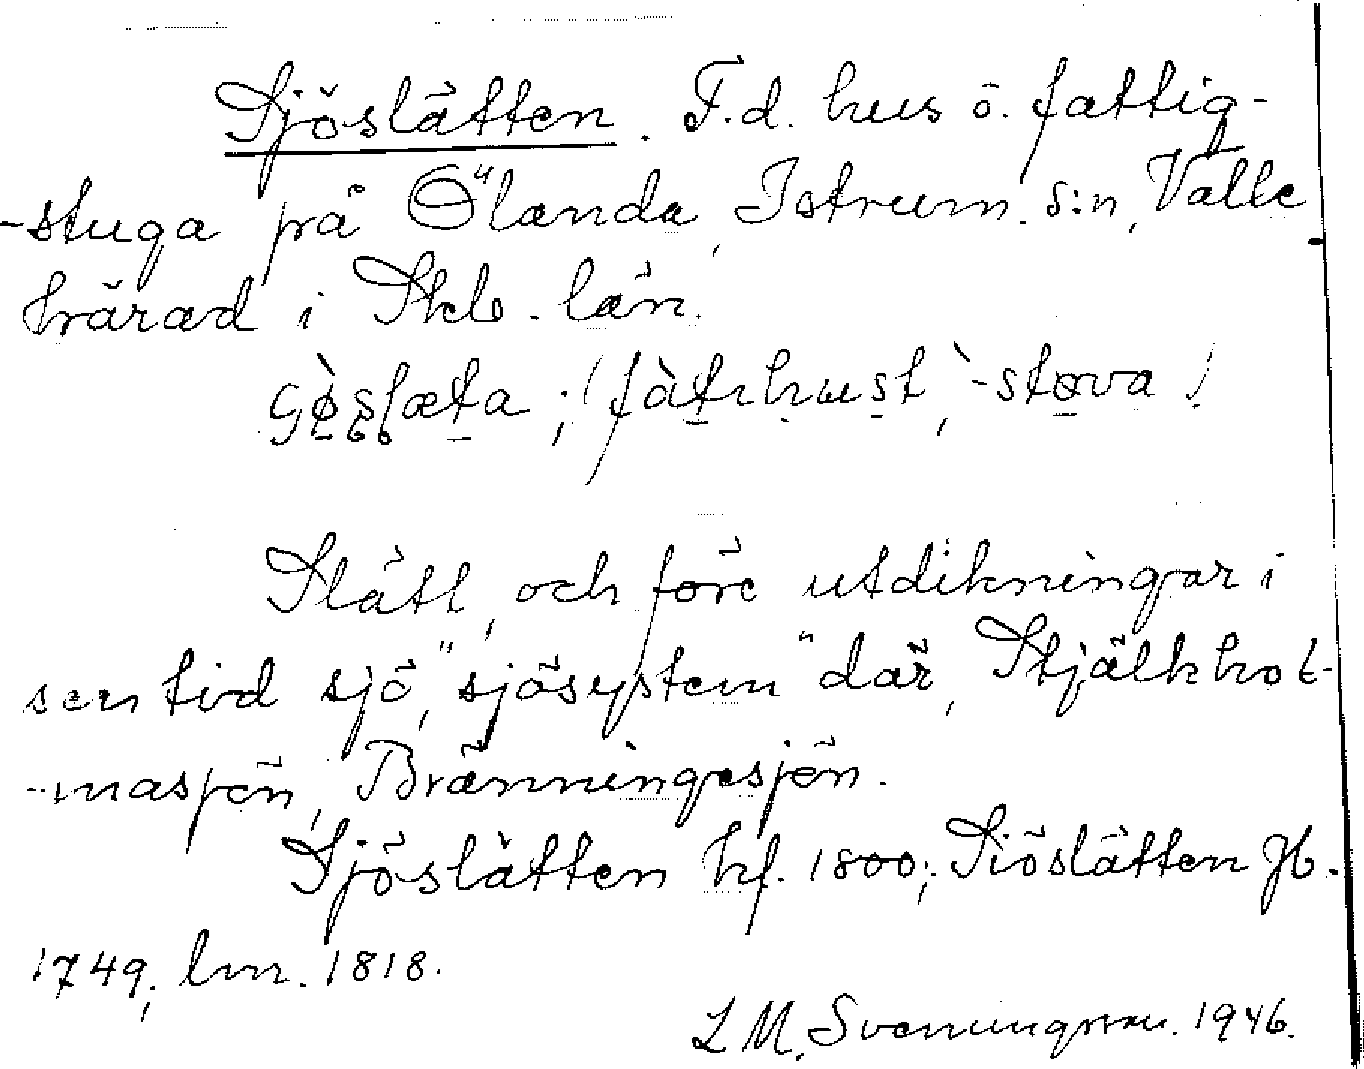 Sjöslätten. F.d. hus o. fattig-
-stuga på Ölanda, Istrum s:n, Valle
härad i Skb. län.
Slätt, och före utdikningar i
sen tid sjö, "sjösystem" där, Stjälkhol-
-masjön, Bränningesjön.
Sjöslätten hf. 1800; Siöslätten Jb.
1749; lm. 1818.
L M. Sveningsson. 1946.